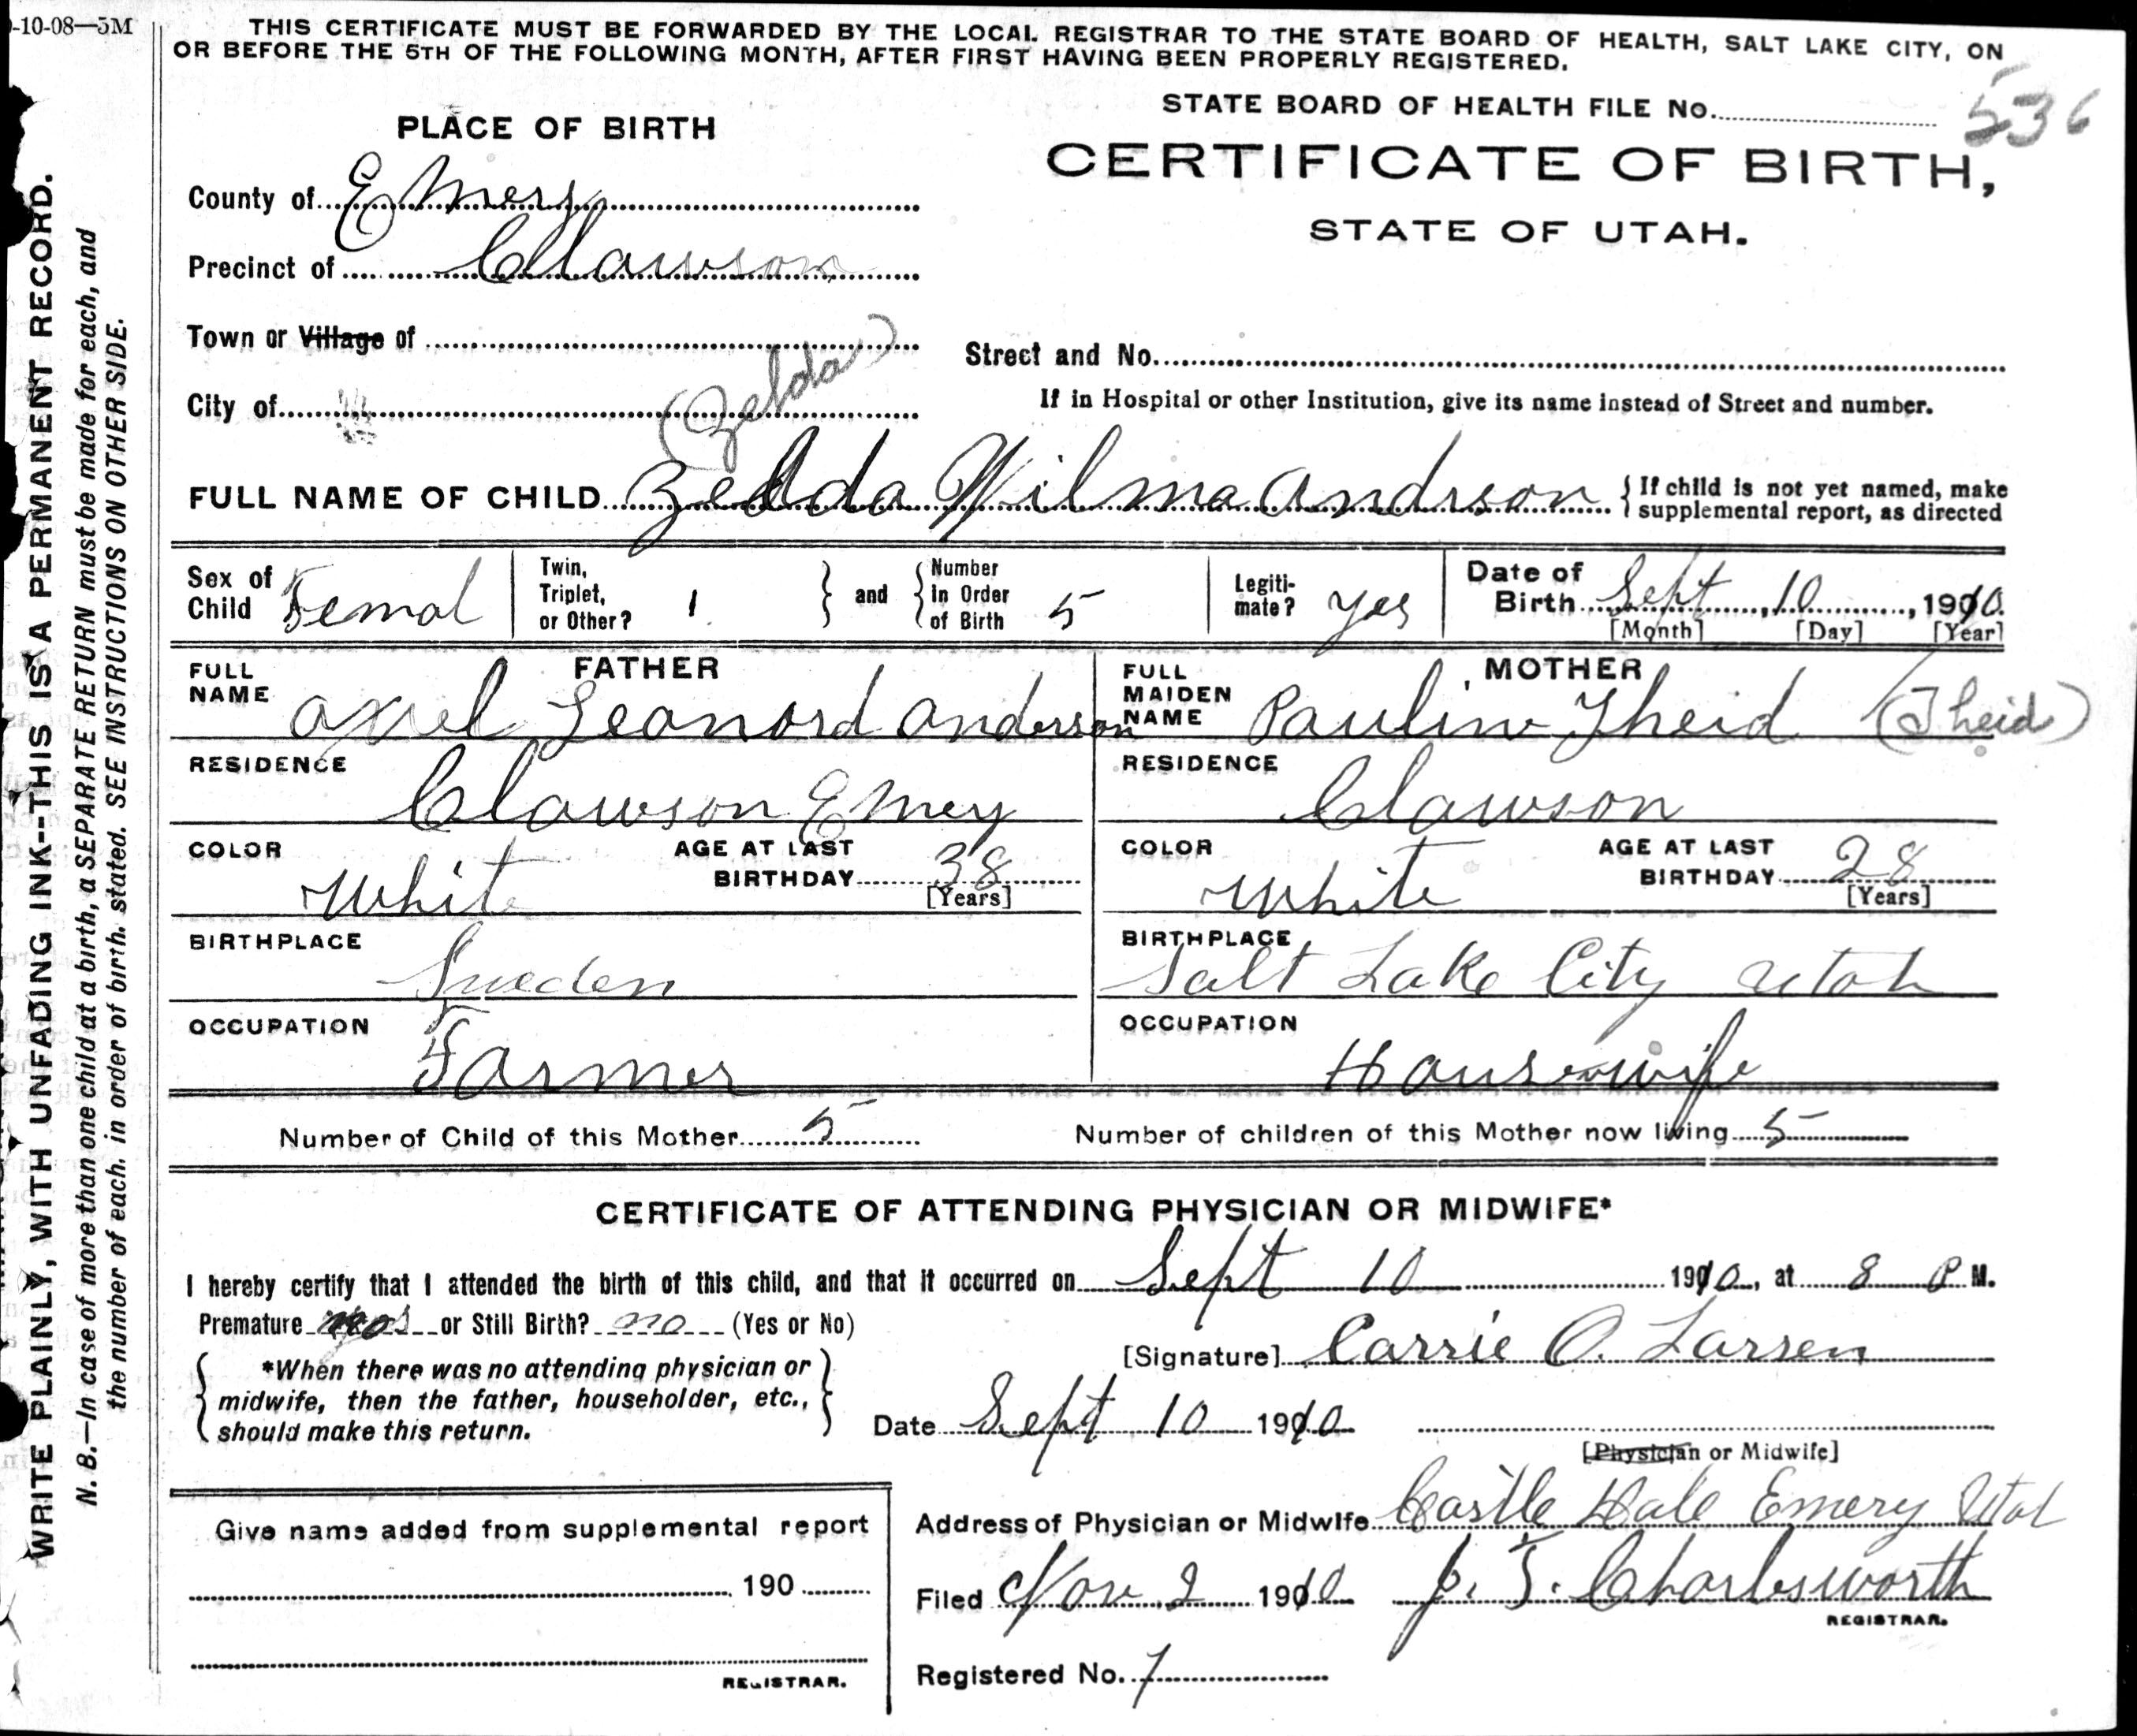 -10-08—5M
THIS CERTIFICATE MUST BE FORWARDED BY THE LOCAL REGISTRAR TO THE STATE BOARD OF HEALTH, SALT LAKE CITY, ON
OR BEFORE THE 5TH OF THE FOLLOWING MONTH, AFTER FIRST HAVING BEEN PROPERLY REGISTERED.
WRITE PLAINLY, WITH UNFADING INK--THIS IS A PERMANENT RECORD.
N. B.—In case of more than one child at a birth, a SEPARATE RETURN must be made for each, and
the number of each, in order of birth, stated. SEE INSTRUCTIONS ON OTHER SIDE.
STATE BOARD OF HEALTH FILE No. 536
PLACE OF BIRTH
CERTIFICATE OF BIRTH,
STATE OF UTAH.
County of Emery
Precinct of Clawson
Town or Village of
Street and No.
City of
(Zelda)
If in Hospital or other Institution, give its name instead of Street and number.
FULL NAME OF CHILD Zelda Wilma Andrson
If child is not yet named, make
supplemental report, as directed
Sex of Child Femal
Twin, Triplet, or Other? 1
and
Number in Order of Birth 5
Legiti-mate? yes
Date of Birth Sept, 10, 1910
[Month] [Day] [Year]
FATHER
FULL NAME Axel Leonord Anderson
MOTHER
FULL MAIDEN NAME Pauline Theid (Theid)
RESIDENCE Clawson Emey
RESIDENCE Clawson
COLOR White
AGE AT LAST BIRTHDAY 38 [Years]
COLOR White
AGE AT LAST BIRTHDAY 28 [Years]
BIRTHPLACE Sweden
BIRTHPLACE Salt Lake City Utah
OCCUPATION Farmer
OCCUPATION Housewife
Number of Child of this Mother 5
Number of children of this Mother now living 5
CERTIFICATE OF ATTENDING PHYSICIAN OR MIDWIFE*
I hereby certify that I attended the birth of this child, and that it occurred on Sept 10 1910, at 8 P M.
Premature or Still Birth? no (Yes or No)
[Signature] Carrie O. Larsen
*When there was no attending physician or
midwife, then the father, householder, etc.,
should make this return.
Date Sept 10 1910
[Physician or Midwife]
Give name added from supplemental report
190
REGISTRAR.
Address of Physician or Midwife Castle Dale Emery Utah
Filed Nov. 2 1910 J. T. Charlesworth
REGISTRAR.
Registered No. 7